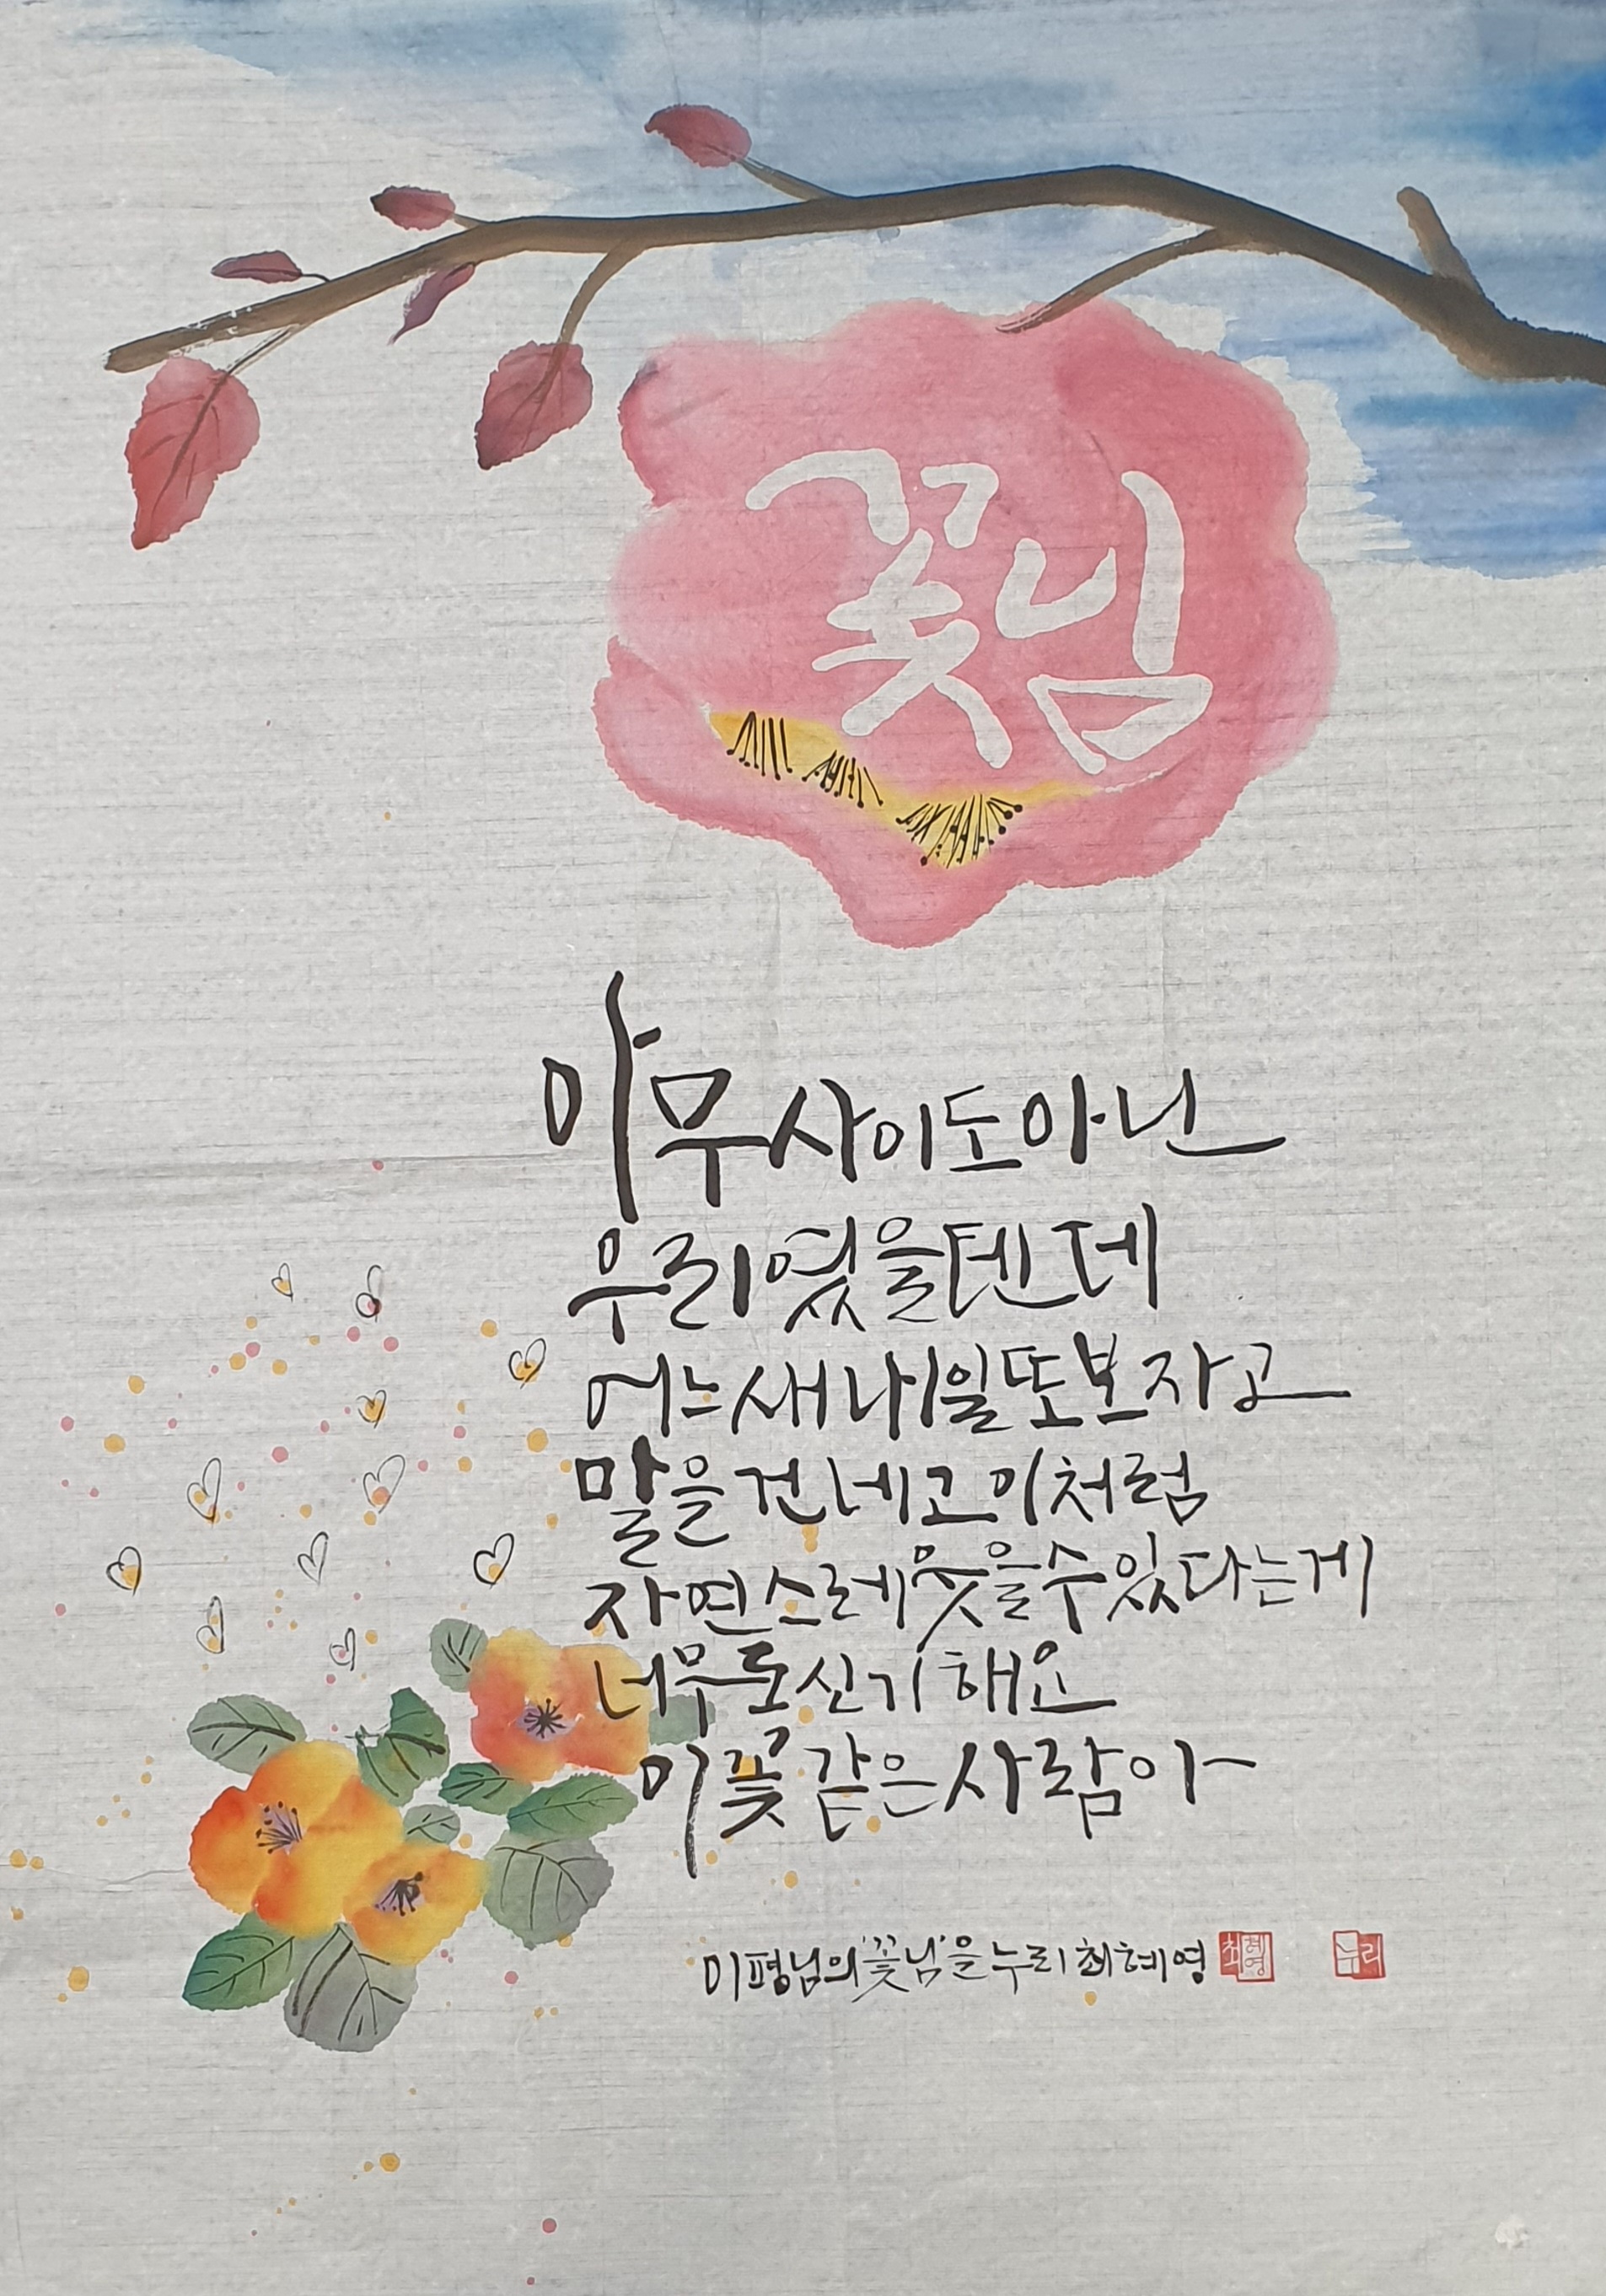 꽃님
아무 사이도 아닌
우리였을텐데
어느새 내일 또 보자고
말을 건네고 이처럼
자연스레 웃을 수 있다는게
너무도 신기해요
이 꽃 같은 사람아
이평님의 '꽃님'을 누리 최혜영
최혜영
누리